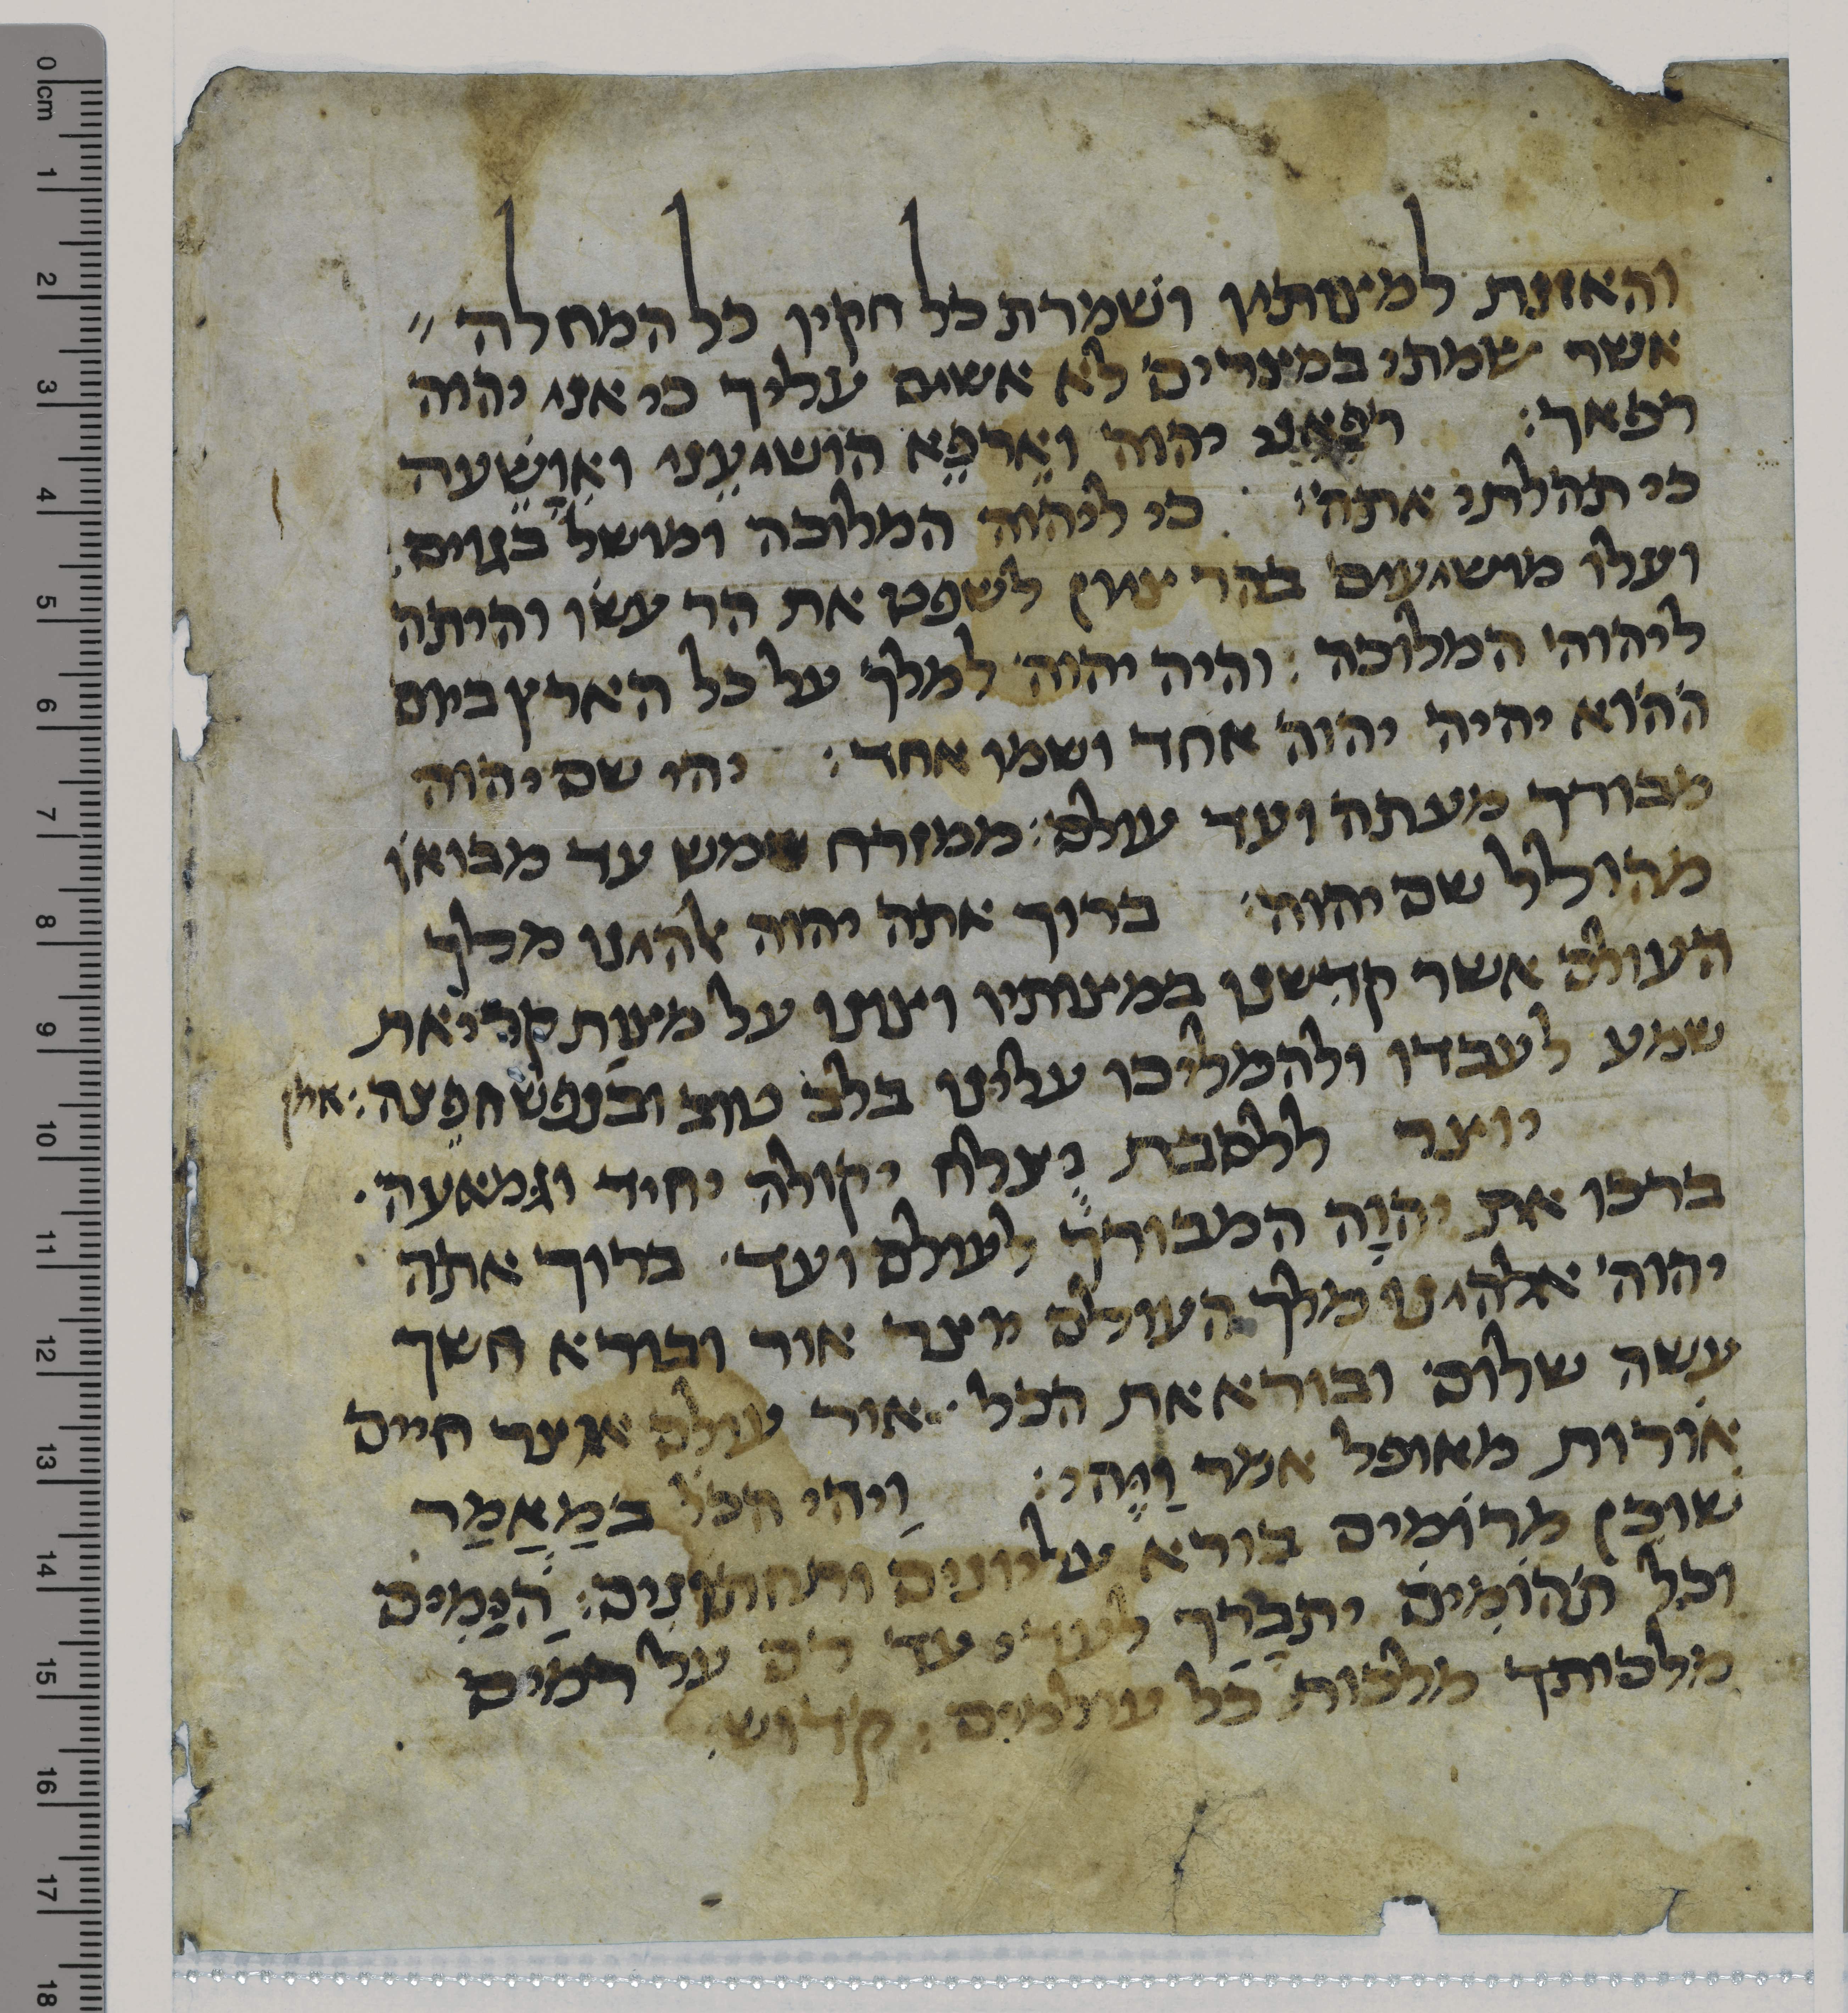 והאזנת למיצותיו ושמרת כל חקיו כל המחלה
אשר שמתי במצרים לא אשים עליך כי אני יהוה
רפאך : רפאני יהוה וארפא הושועני ואושעה
כי תהלתי אתה : כי ליהוה המלוכה ומושל בגוים
ועלו מושועים בהר ציון לשפט את הר עשו והיתה
ליהוה המלוכה : והיה יהוה למלך על כל הארץ ביום
ההוא יהיה יהוה אחד ושמו אחד : יהי שם יהוה
מבורך מעתה ועד עולם : ממזרח שמש עד מבואו
מהולל שם יהוה : ברוך אתה יהוה אלהינו מלך
העולם אשר קדשנו במצותיו וצונו על מצות קריאת
שמע לעבדו ולהמליכו עלינו בלב טוב ובנפש חפצה : אמן
יוצר ללסבת יצלח יקולה יחיד וגמאעה .
ברכו את יהוה המבורך לעולם ועד . ברוך אתה
יהוה אלהינו מלך העולם יוצר אור ובורא חשך
עשה שלום ובורא את הכל . אור עולם אוצר חיים
אורות מאופל אמר וַיֶהי : וַיהי הכל בְמַאֲמַר
שוכן מרומים בורא עליונים ותחתונים : הַיָמִים
וכל תהומים יתברך לעדי עד רם על רמים
מלכותך מלכות כל עולמים : קדוש